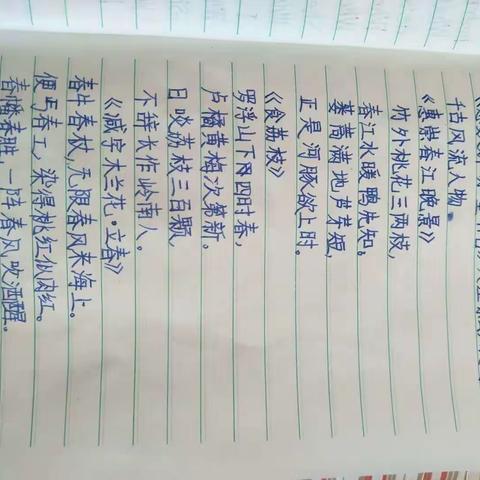 千古风流人物
《惠崇春江晚景》
竹外桃花三两枝,
春江水暖鸭先知。
蒌蒿满地芦芽短,
正是河豚欲上时。
《食荔枝》
罗浮山下四时春,
卢橘黄梅次第新。
日啖荔枝三百颗,
不辞长作岭南人。
《减字木兰花·立春》
春牛春杖,无限春风来海上。
便丐春工,染得桃红似肉红。
春幡春胜,一阵春风吹酒醒。